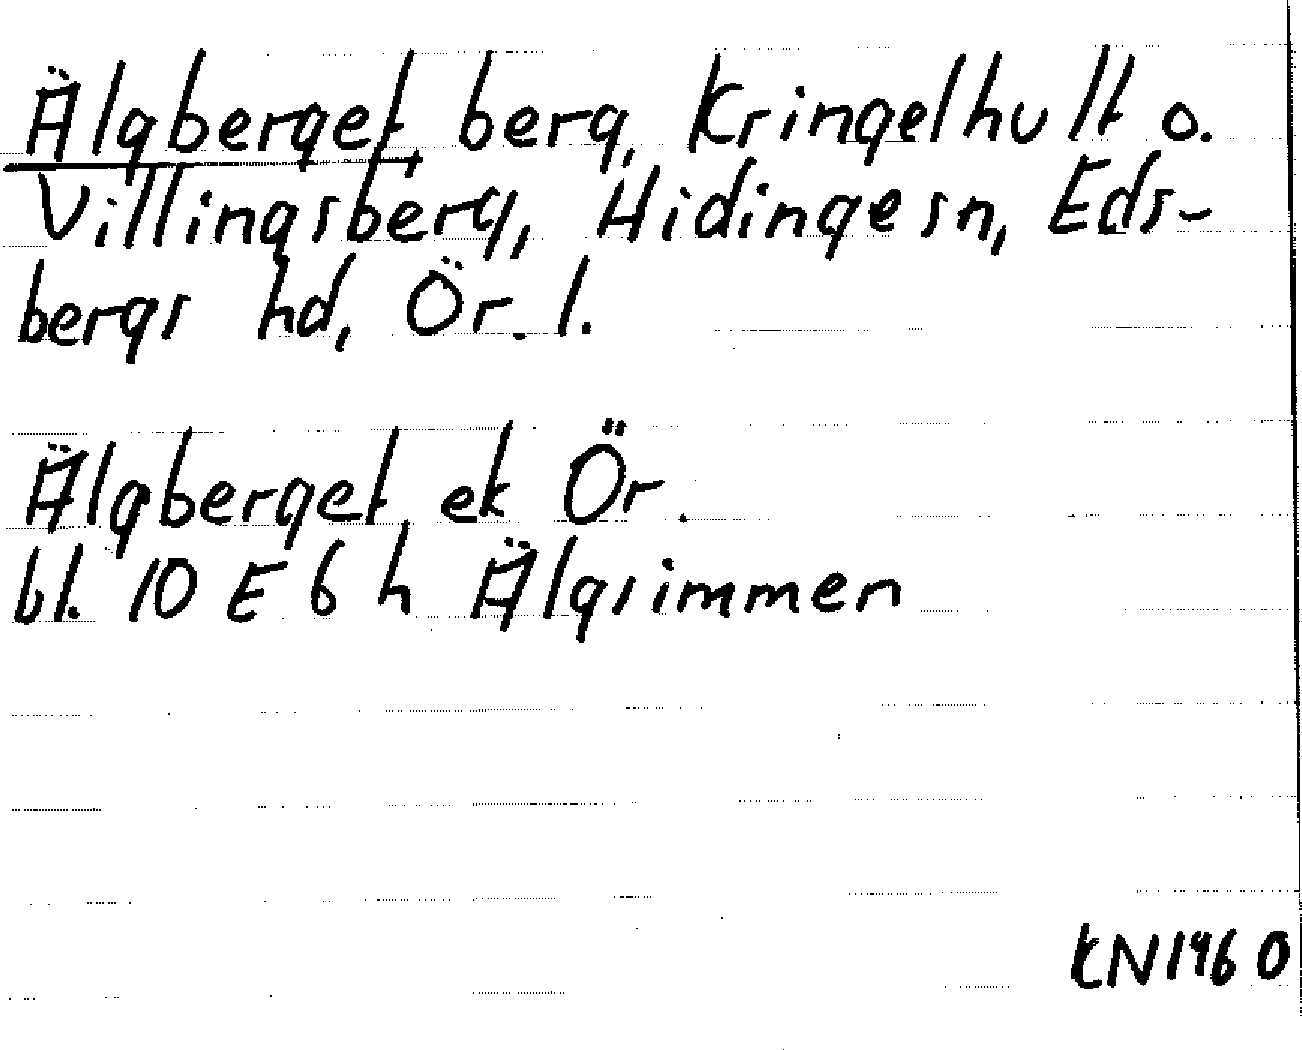 Älgberget, berg, Kringelhult o.
Villingsberg, Hidingesn, Eds-
bergs hd, Ör. l.
Älgberget ek Ör.
bl. 10 E 6 h Älgsimmen
KN1960